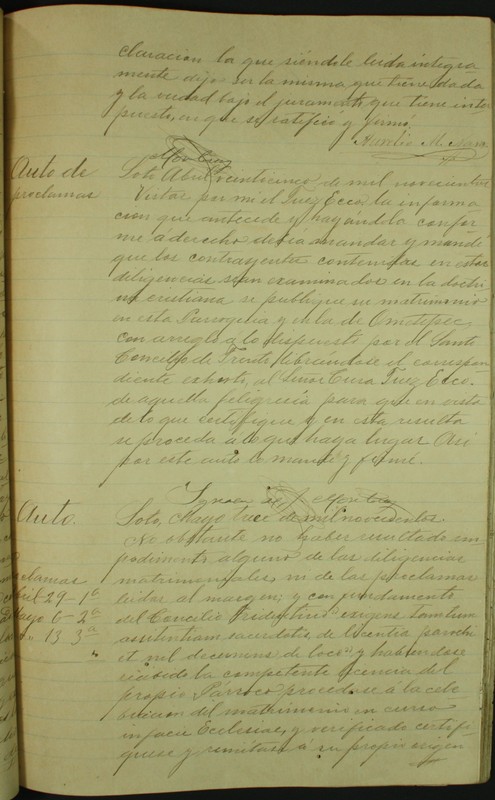 claracion la que siéndole leida integra
mente dijo ser la misma que tiene dada
y la verdad bajo el juramento que tiene inter
puesto, en que se ratificó y firmó.
Aurelio M.
Auto de
proclamas
Soto Abril veinticinco de mil novecientos
Vistas por mi el Juez Ecco. la informa
cion que antecede y hayándola confor
me á derecho debia mandar y mandé
que los contrayentes contenidos en estas
diligencias sean examinados en la doctri
na cristiana se publique su matrimonio
en esta Parroquia y en la de Ometepec
con arreglo a lo dispuesto por el Santo
Concilio de Trento librándose el correspon
diente exhorto, al Señor Cura Juez Ecco.
de aquella feligrecia para que en vista
de lo que certifique y en esta resulta
se proceda á lo que haga lugar Asi
por este auto lo mandé y firmé.
Auto.
Soto, Mayo trece de mil novecientos
No obstante no haber resultado im
pedimento alguno de las diligencias
matrimoniales, ni de las proclamas
leidas al margen; y con fundamento
del Concilio Tridentino exigens tantum
assistentiam sacerdotis de licentia parochi
et nil decernens de loco; y habiendose
recibido la competente licencia del
propio Párroco procedase á la cele
bracion del matrimonio en curso
infacie Ecclesiae, y verificado certifi
quese y remitase á su propio origen
clamas
bril 29 - 1a
Mayo 6 - 2a
" 13 3a